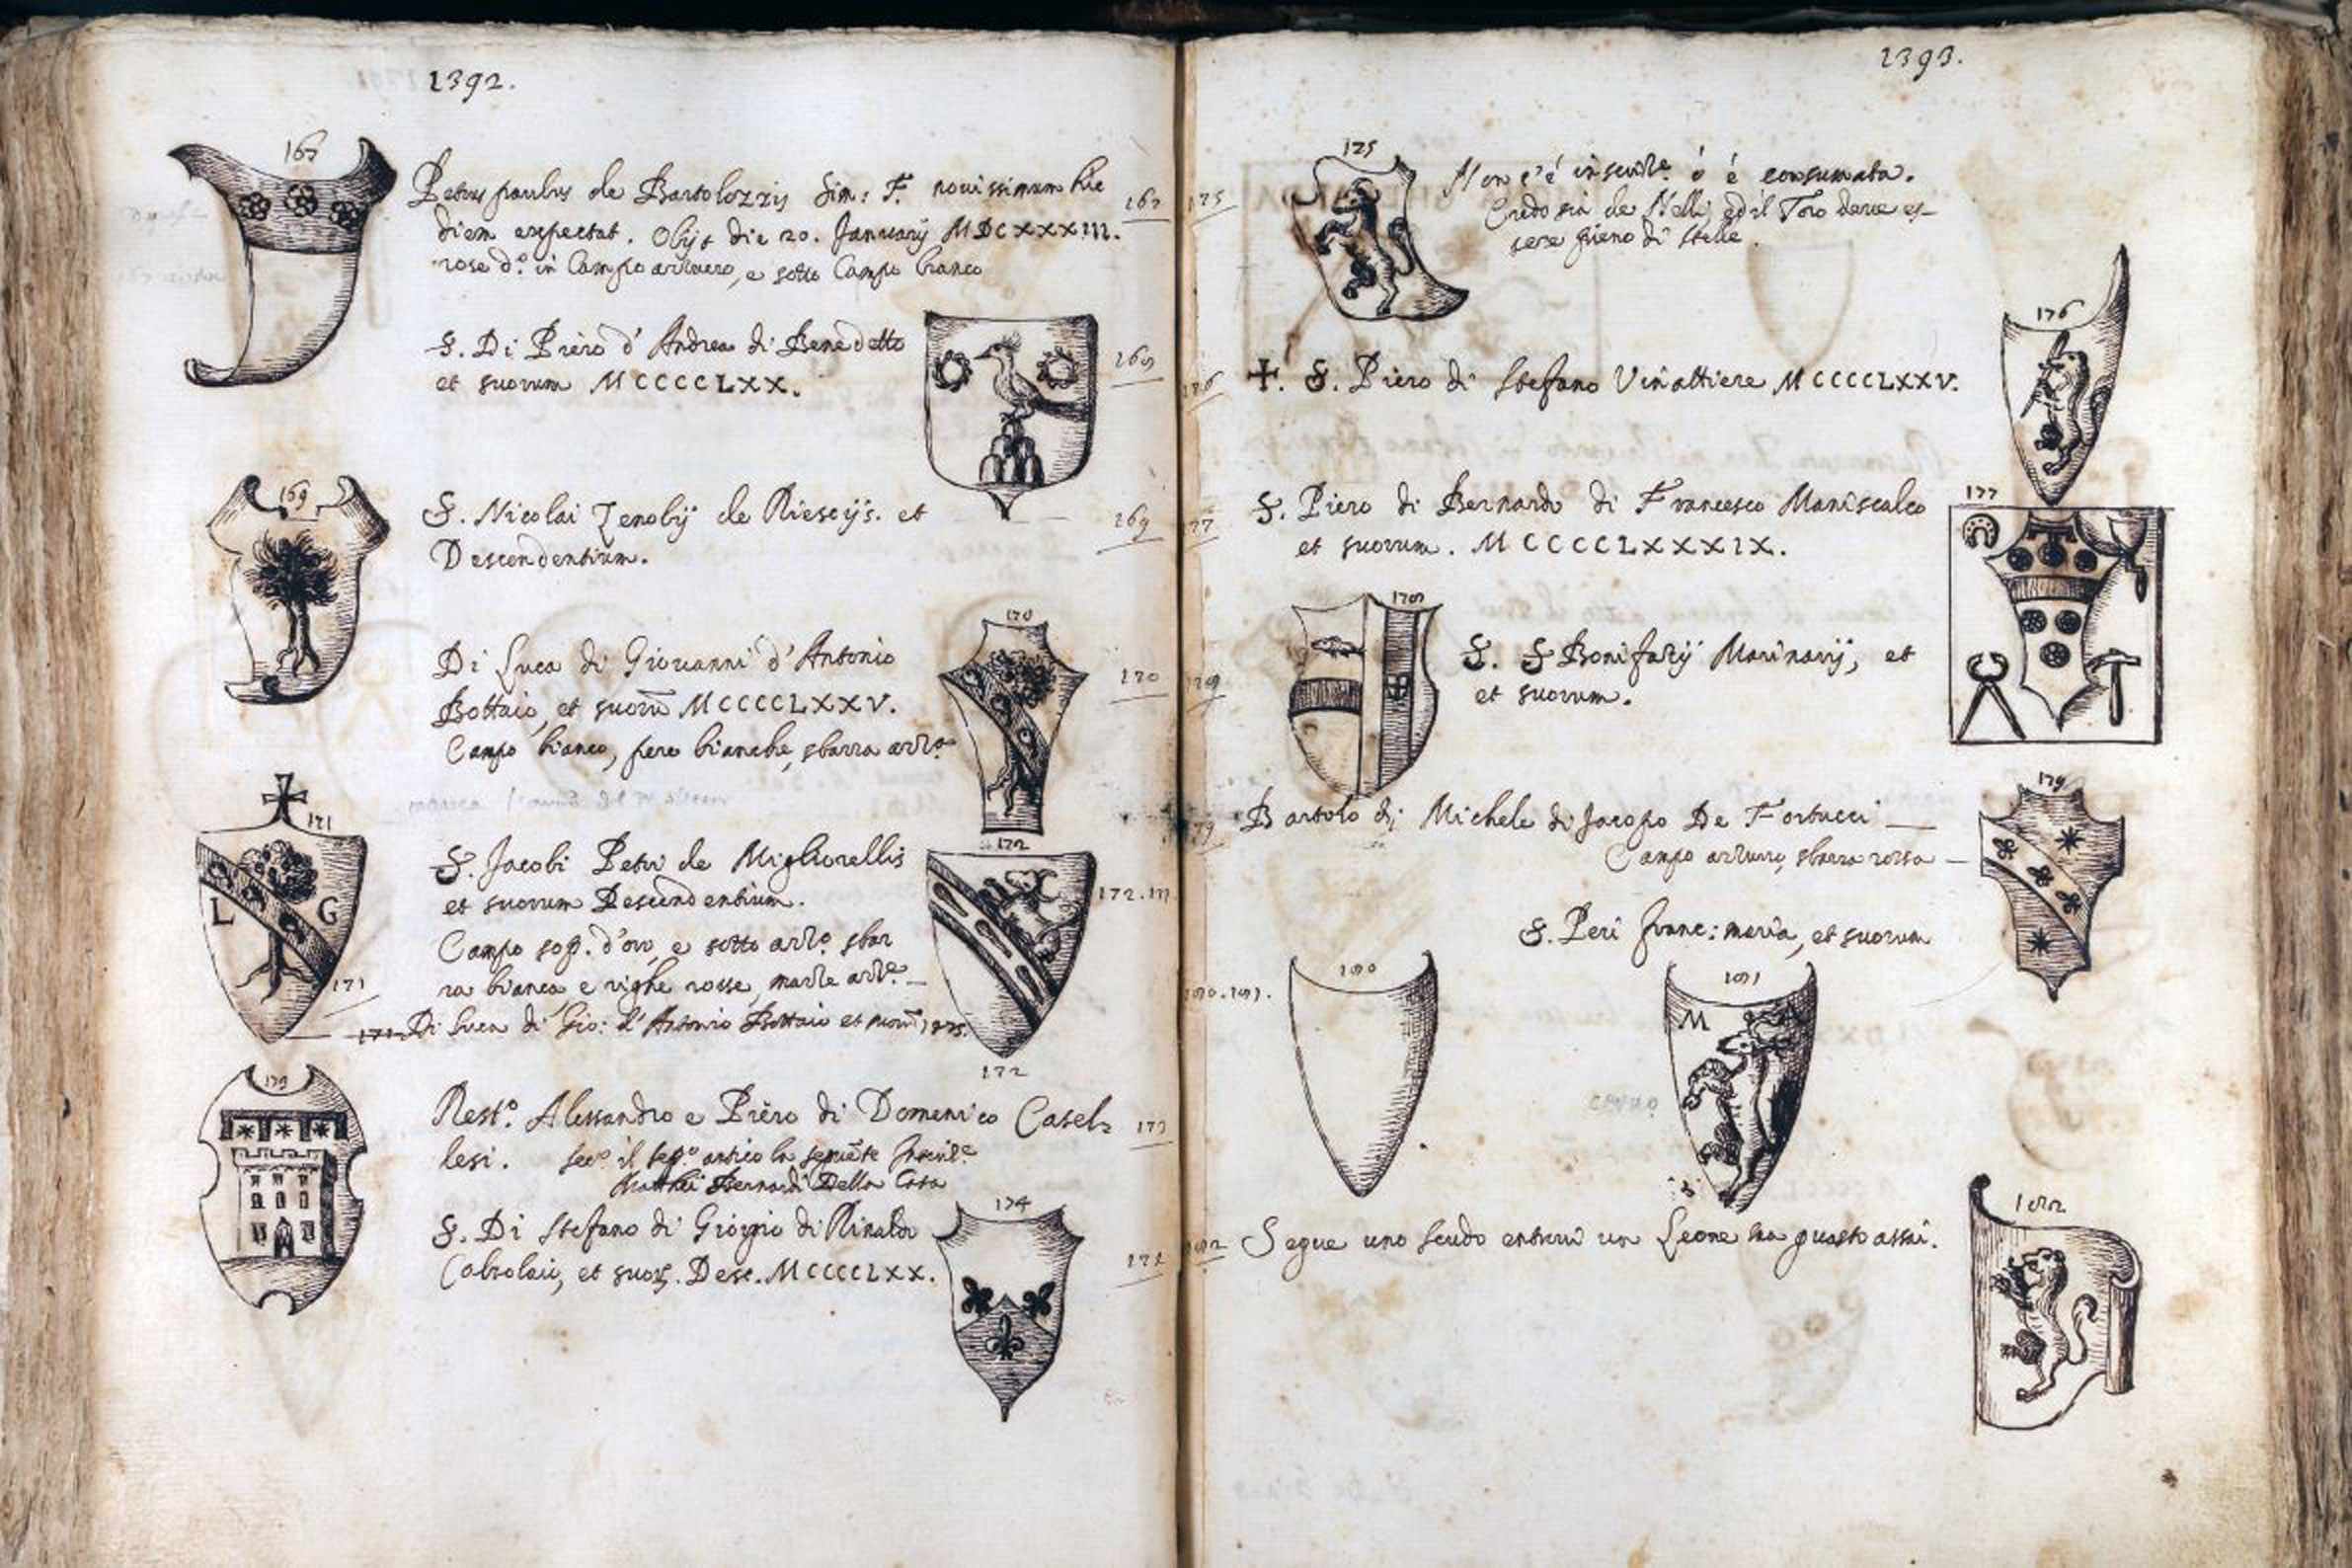 1392.
167
Petrus paulus de Bartolozzis Sim: F. novissimum hic
diem expectat. Obijt die 20. Januarij MDCXXXIII.
rose d.º in Campo azzurro, e sotto Campo bianco
167
S. Di Piero d' Andrea di Benedetto
et suorum MCCCCLXX.
168
169
S. Nicolai Zenobij de Riescijs. et
Descendentium.
169
170
Di Luca di Giovanni d'Antonio
Bottaio, et suorũ MCCCCLXXV.
Campo bianco, pere bianche, sbarra azz.ª
170
171
L G
S. Jacobi Petri de Migliorellis
et suorum Descendentium.
172
172.171
Campo sop. d'oro, e sotto azz.º sbar
ra bianca e righe rosse,
171
Di Luca di Gio: d'Antonio Bottaio et suorũ 1475.
172
173
Rest.º Alessandro e Piero di Domenico Casel-
lesi.
173
Matthei Bernardi Della Casa
174
S. Di Stefano di Giorgio di Rinaldo
et suor. Desc. MCCCCLXX.
174
1393.
175
175
Non c'è inscriz.e ò è consumata.
Credo sia de Nelli, ed il Toro deve es-
sere pieno di stelle.
176
176
✠. S. Piero di Stefano Vinattiere MCCCCLXXV.
177
177
S. Piero di Bernardo di Francesco Maniscalco
et suorum. MCCCCLXXXIX.
178
178
S. S Bonifatij Marinarij, et
et suorum.
179
179
Bartolo di Michele di Jacopo De Fortucci
Campo azzurro, sbarra rossa
S. Peri Franc: maria, et suorum
180
181
180.181.
M
cervo
182
182
Segue uno scudo entrovi un Leone ma guasto assai.